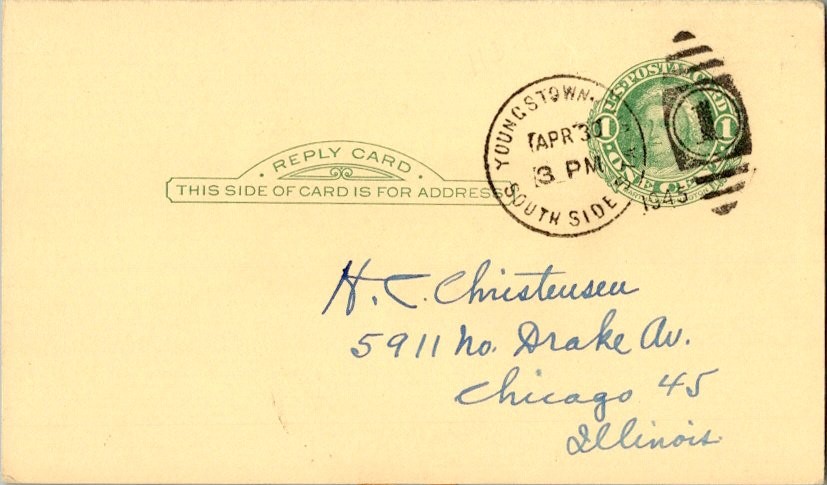 REPLY CARD
THIS SIDE OF CARD IS FOR ADDRESS
YOUNGSTOWN.
APR 30
3 PM
SOUTH SIDE
U.S. POSTAL CARD
1 1
ONE CENT
1
H. C. Christensen
5911 No. Drake Av.
Chicago 45
Illinois